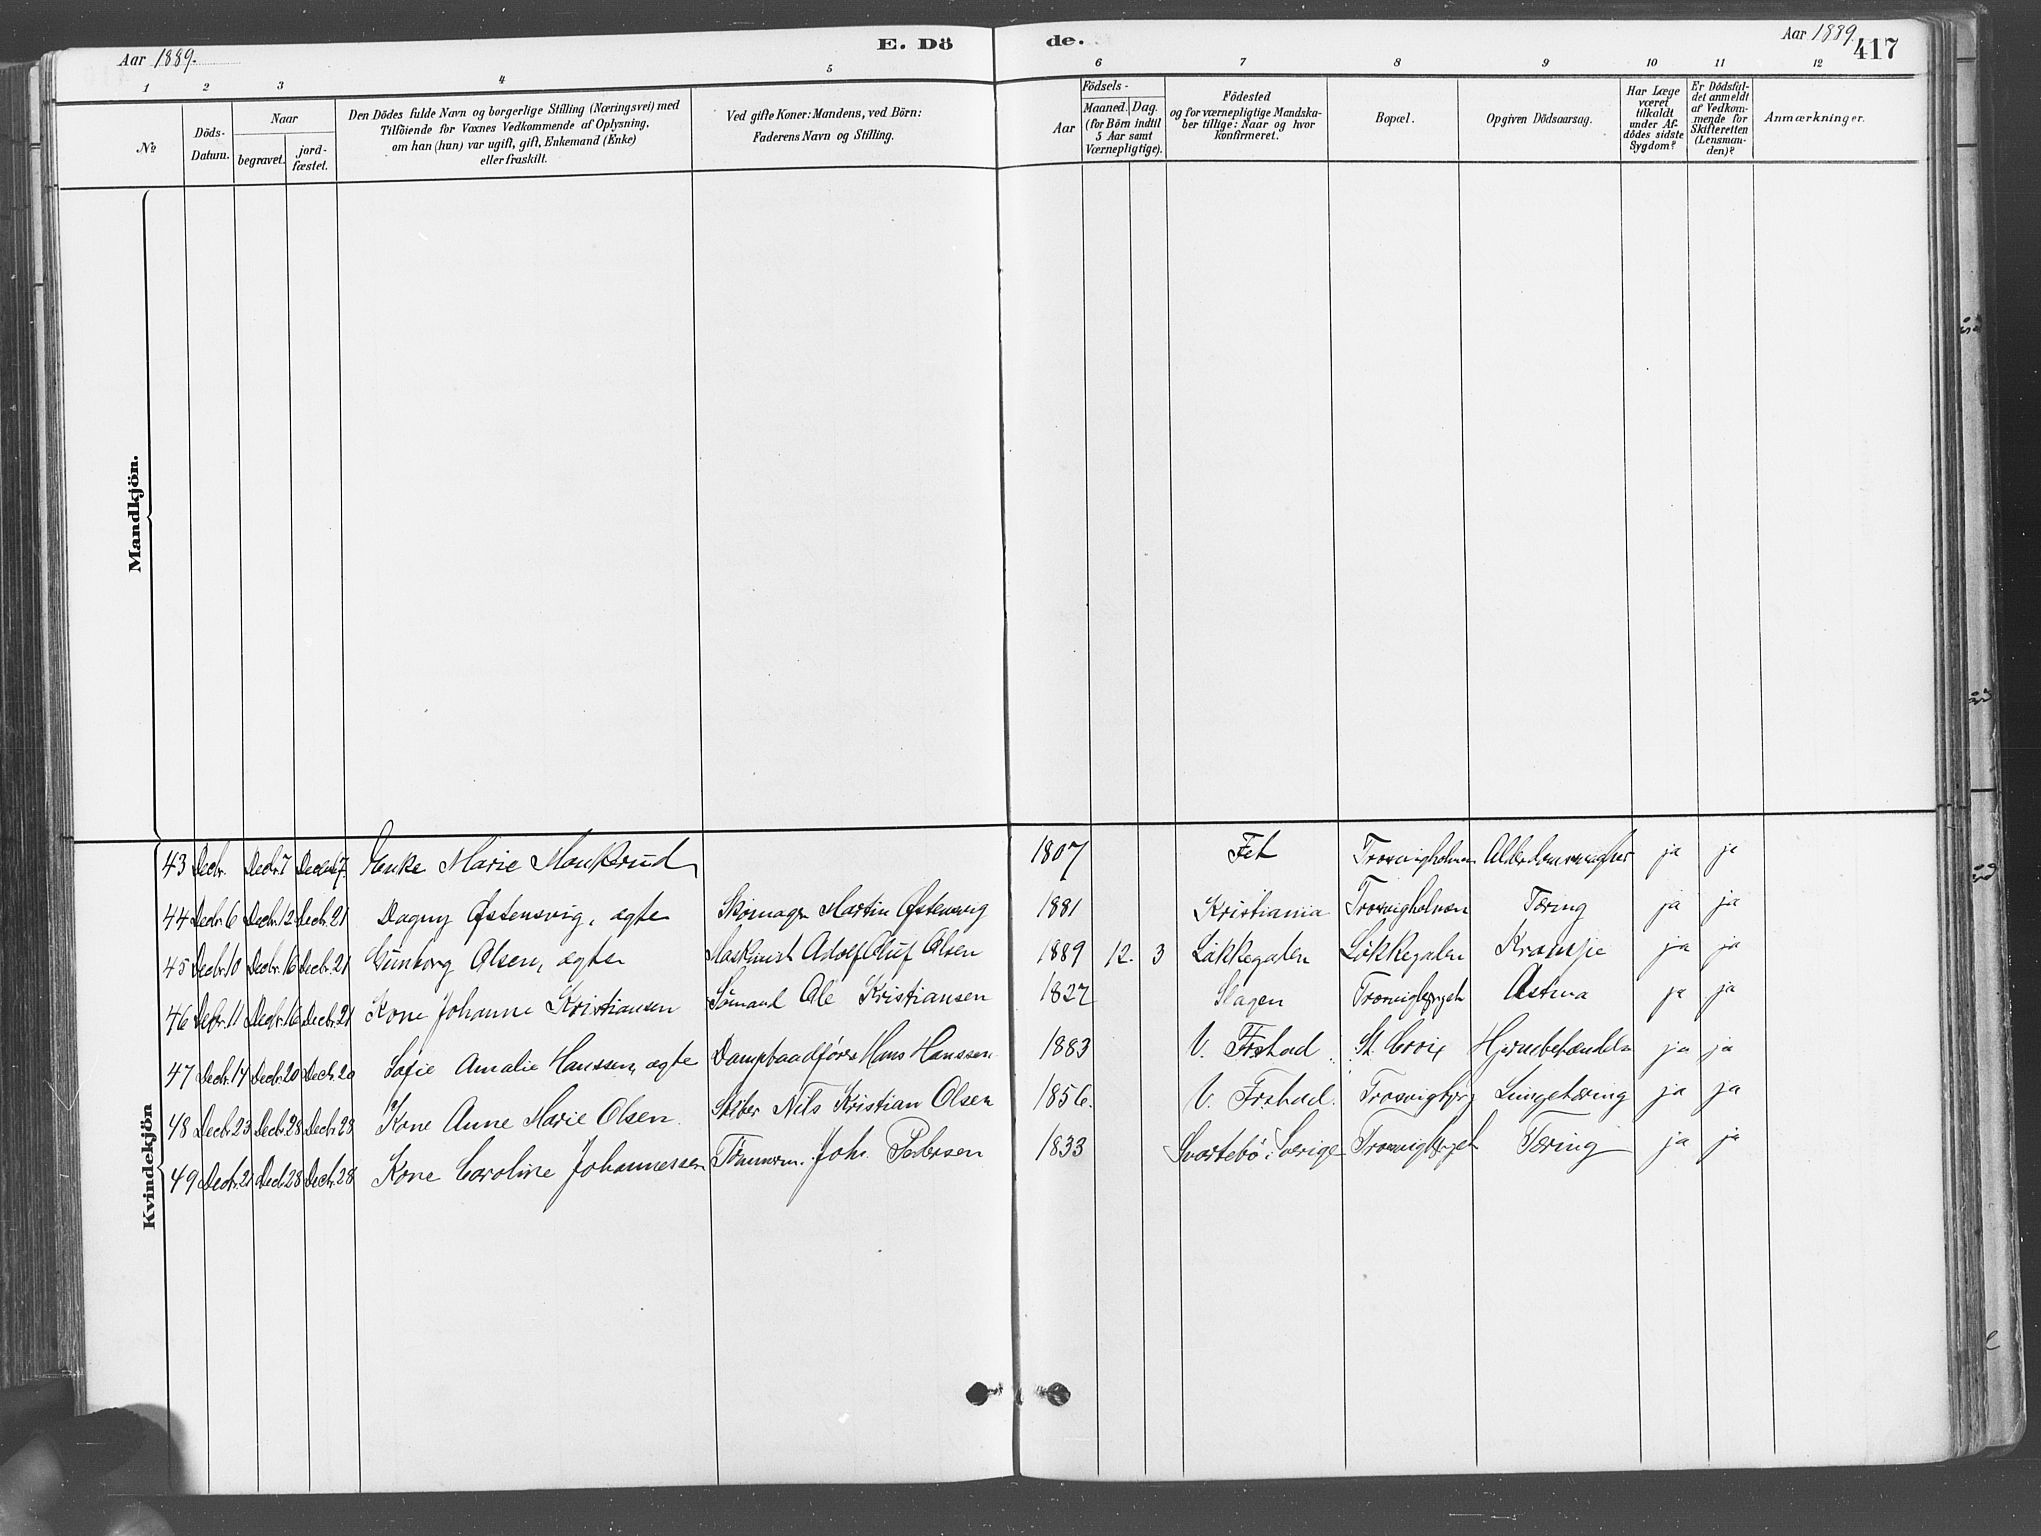 Aar 1889.
E. Dö
de.
Aar 1889.
417
1 2 3 4 5 6 7 8 9 10 11 12
No
Döds-
Datum.
Naar
begravet.
jord-
fæstet.
Den Dödes fulde Navn og borgerlige Stilling (Næringsvei) med
Tilföiende for Voxnes Vedkommende af Oplysning,
om han (hun) var ugift, gift, Enkemand (Enke)
eller fraskilt.
Ved gifte Koner: Mandens, ved Börn:
Faderens Navn og Stilling.
Födsels-
Aar
Maaned. Dag.
(for Börn indtil
5 Aar samt
Værnepligtige).
Födested
og for værnepligtige Mandska-
ber tillige: Naar og hvor
konfirmeret.
Bopæl.
Opgiven Dödsaarsag.
Har Læge
været
tilkaldt
under Af-
dödes sidste
Sygdom?
Er Dödsfal-
det anmeldt
af Vedkom-
mende for
Skifteretten
(Lensman-
den)?
Anmærkninger.
Mandkjön.
Kvindekjön
43 Decbr. Decbr. 7 Enke Marie 1807 Fet Trosvigholmen ja ja
44 Decbr. 6 Decbr. 12 Decbr. 21 Dagny Østensvig, ægte Skomager Martin Østensvig 1881 Kristiania Trosvigholmen Tæring ja ja
45 Decbr. 10 Decbr. 16 Decbr. 21 Gunborg Olsen, ægte Maskinist Adolf Oluf Olsen 1889 12. 3 Løkkegaden Løkkegaden Krampe ja ja
46 Decbr. 11 Decbr. 16 Decbr. 21 Kone Johanne Kristiansen Sømand Ole Kristiansen 1827 Slagen Trosvigberget Astma ja ja
47 Decbr. 14 Decbr. 20 Decbr. 20 Sofie Amalie Hanssen, ægte Dampbaadfører Hans Hanssen 1883 V. Frstad. St. Croix ja ja
48 Decbr. 23 Decbr. 28 Decbr. 28 Kone Anne Marie Olsen. Støber Nils Kristian Olsen 1856. V. Frstad. Trosvigbjerg Lungetæring ja ja
49 Decbr. 21 Decbr. 28 Decbr. 28 Kone Caroline Johannessen Tömmerm. Joh. Pedersen 1833 Svartebö i Sverige Trosvigberget Tæring ja ja